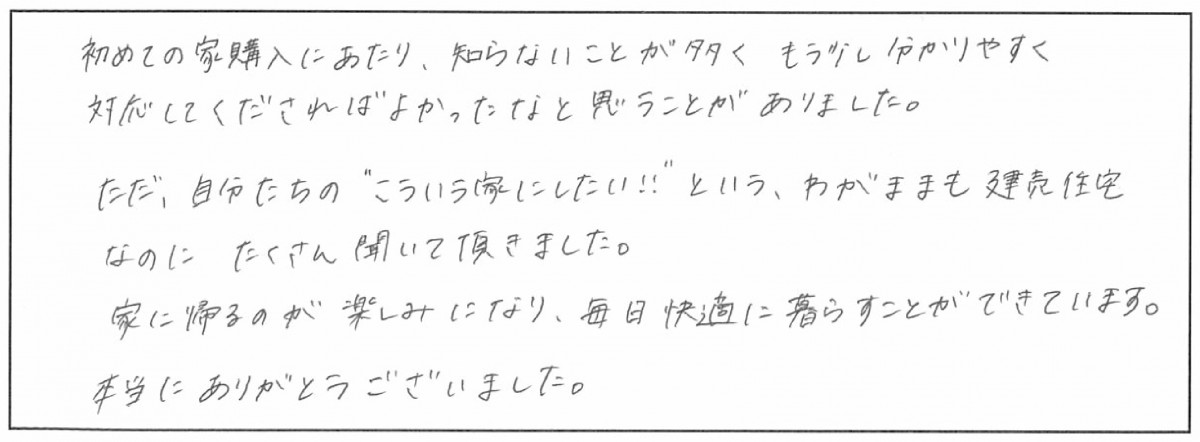 初めての家購入にあたり、知らないことが多く もう少し分かりやすく
対応してくだされればよかったなと思うことがありました。
ただ、自分たちの"こういう家にしたい!!"という、わがままも建売住宅
なのに たくさん聞いて頂きました。
家に帰るのが楽しみになり、毎日快適に暮らすことができています。
本当にありがとうございました。